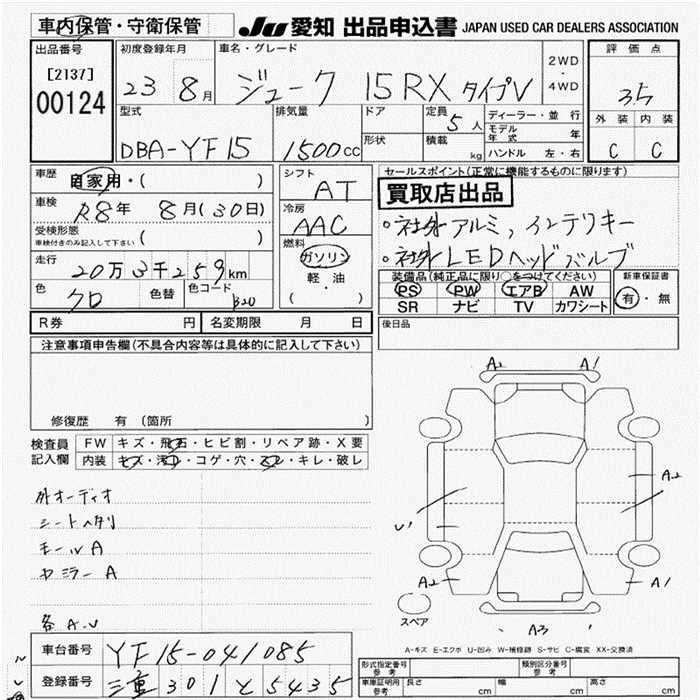 車内保管・守衛保管
JU 愛知 出品申込書 JAPAN USED CAR DEALERS ASSOCIATION
出品番号
[2137]
00124
初度登録年月
23 8月
車名・グレード
ジューク 15RX タイプV
2WD
・
4WD
評価点
3.5
外装 内装
C C
型式
DBA-YF15
排気量
1500cc
ドア
形状
定員
5人
積載
kg
ディーラー・並行
モデル年式 年
ハンドル 左・右
車歴 自家用・( )
車検 R8年 8月(30日)
受検形態
車検付きのみ記入して下さい ( )
走行
20万3千259km
色
クロ
色替
色コード
シフト
AT
冷房
AAC
燃料
ガソリン
軽・油
( )
セールスポイント(正常に機能するものに限ります)
買取店出品
。社外アルミ,インテリキー
。社外LEDヘッドバルブ
装備品(純正品に限り○をつけてください)
PS PW エアB AW
SR ナビ TV カワシート
新車保証書
有・無
R券 円 名変期限 月 日
後日品
注意事項申告欄(不具合内容等は具体的に記入して下さい)
修復歴 有 (箇所 )
検査員
記入欄
FW キズ・飛石・ヒビ割・リペア跡・X要
内装 キズ・汚れ・コゲ・穴・スレ・キレ・破レ
外オーディオ
シートヘタリ
モールA
ドミラーA
各A.U
A2 A1
A2
U1
A2 A1
A3
スペア
A-キズ E-エクボ U-凹み W-補修跡 S-サビ C-腐食 XX-交換済
車台番号 YF15-041085
登録番号 三重 301 と 5435
形式指定番号
参考
類別区分番号
参考
車庫証明用
参考
長さ cm 幅 cm 高さ cm